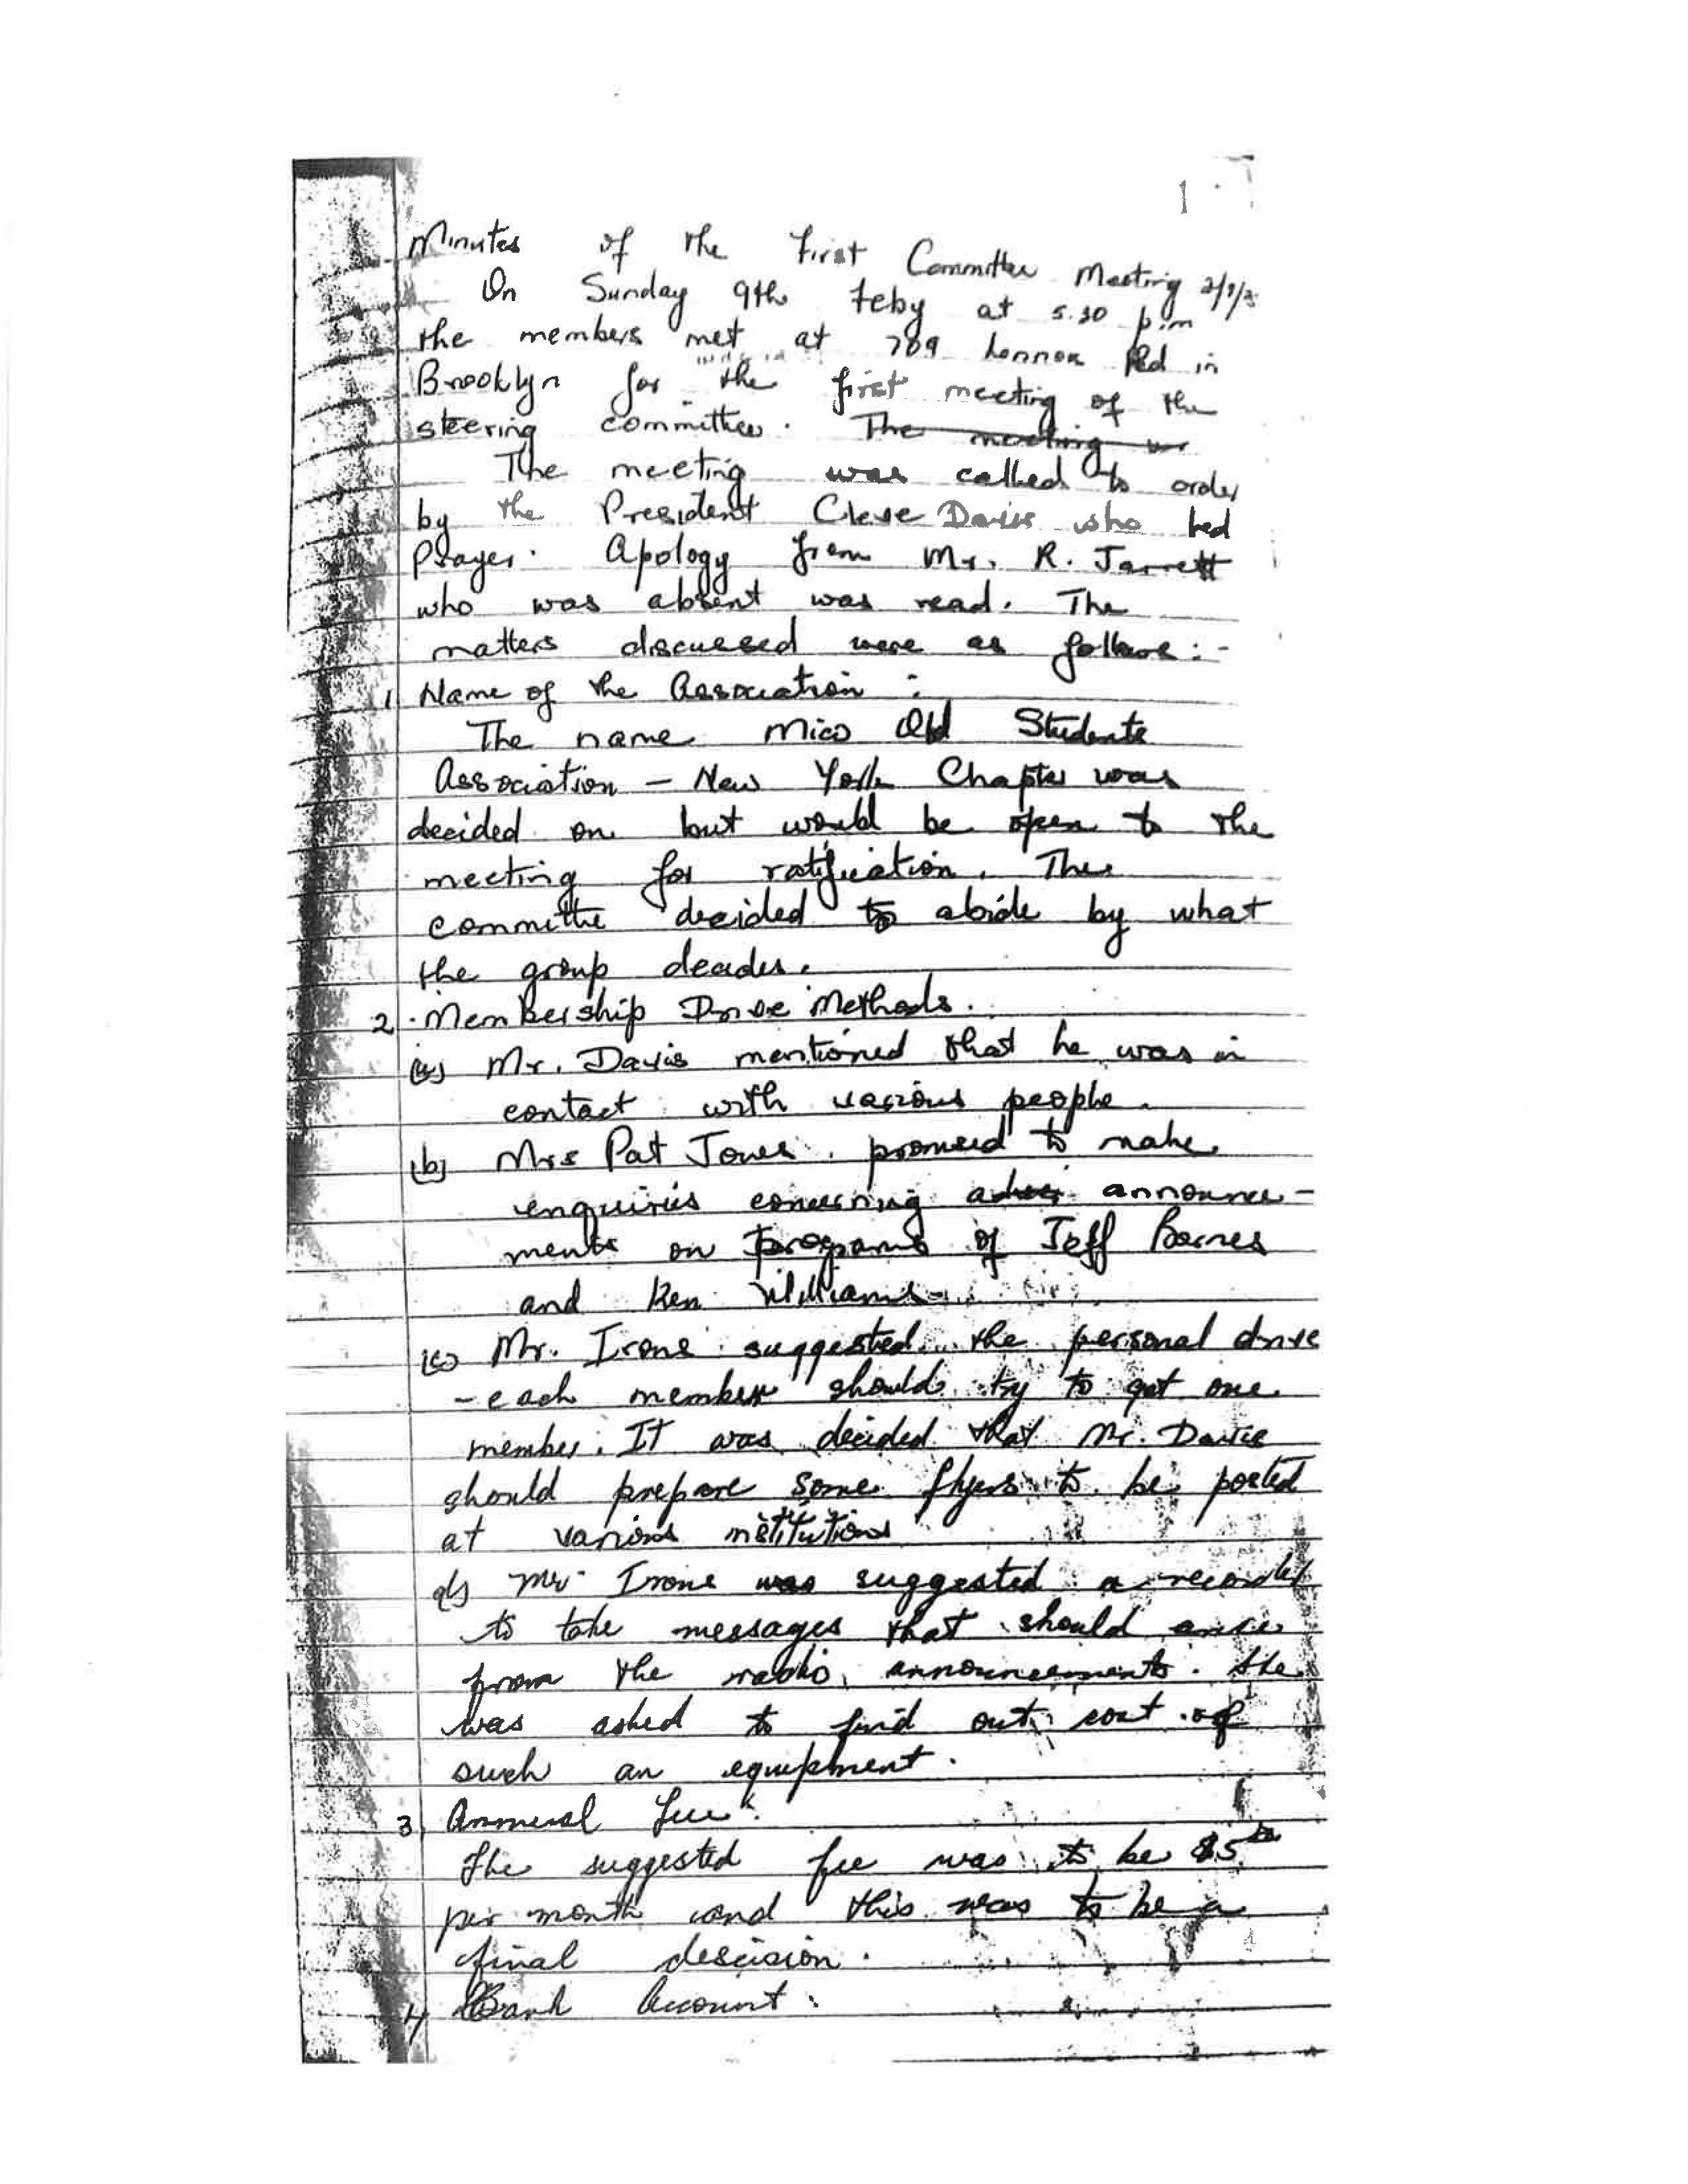 1
Minutes of the First Committee Meeting
On Sunday 9th Feby at 5.30 p.m
the members met at 789 Lennox Rd in
Brooklyn for the first meeting of the
steering committee. The meeting
The meeting was called to order
by the President Cleve Davis who led
Prayer. Apology from Mr. R. Jarrett
who was absent was read. The
matters discussed were as follows:-
1. Name of the Association :
The name Mico Old Students
Association – New York Chapter was
decided on but would be open to the
meeting for ratification. The
committe decided to abide by what
the group decides.
2. Membership Drive Methods.
(a) Mr. Davis mentioned that he was in
contact with various people.
(b) Mrs Pat Jones promised to make
enquiries concerning announce-
ments on programs of Jeff Barnes
and Ken Williams
(c) Mr. Irons suggested the personal drive
- each member should try to get one
member. It was decided that Mr. Davis
should prepare some flyers to be posted
at various institutions
d) Mr. Irons was suggested a recorder
to take messages that should arise
from the radio announcements. She
was asked to find out cost of
such an equipment.
3. Annual Fee:
The suggested fee was to be $5.00
per month and this was to be a
final descision.
4 Bank Account: